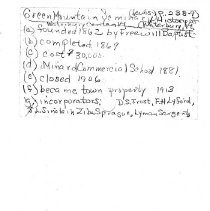 Green Mountain Seminary (Lewis, p. 238-9)
Waterbury Center, Waterbury, Vt.
(a) founded 1862 by Free will Baptist
(b) completed 1869
(c) cost $30,000.
(d) Minard Commercial School 1881
(e) closed 1906
(f) became town property 1913
(g) incorporators: D.S. Frost, F.H. Lyford,
Lyman Sargent